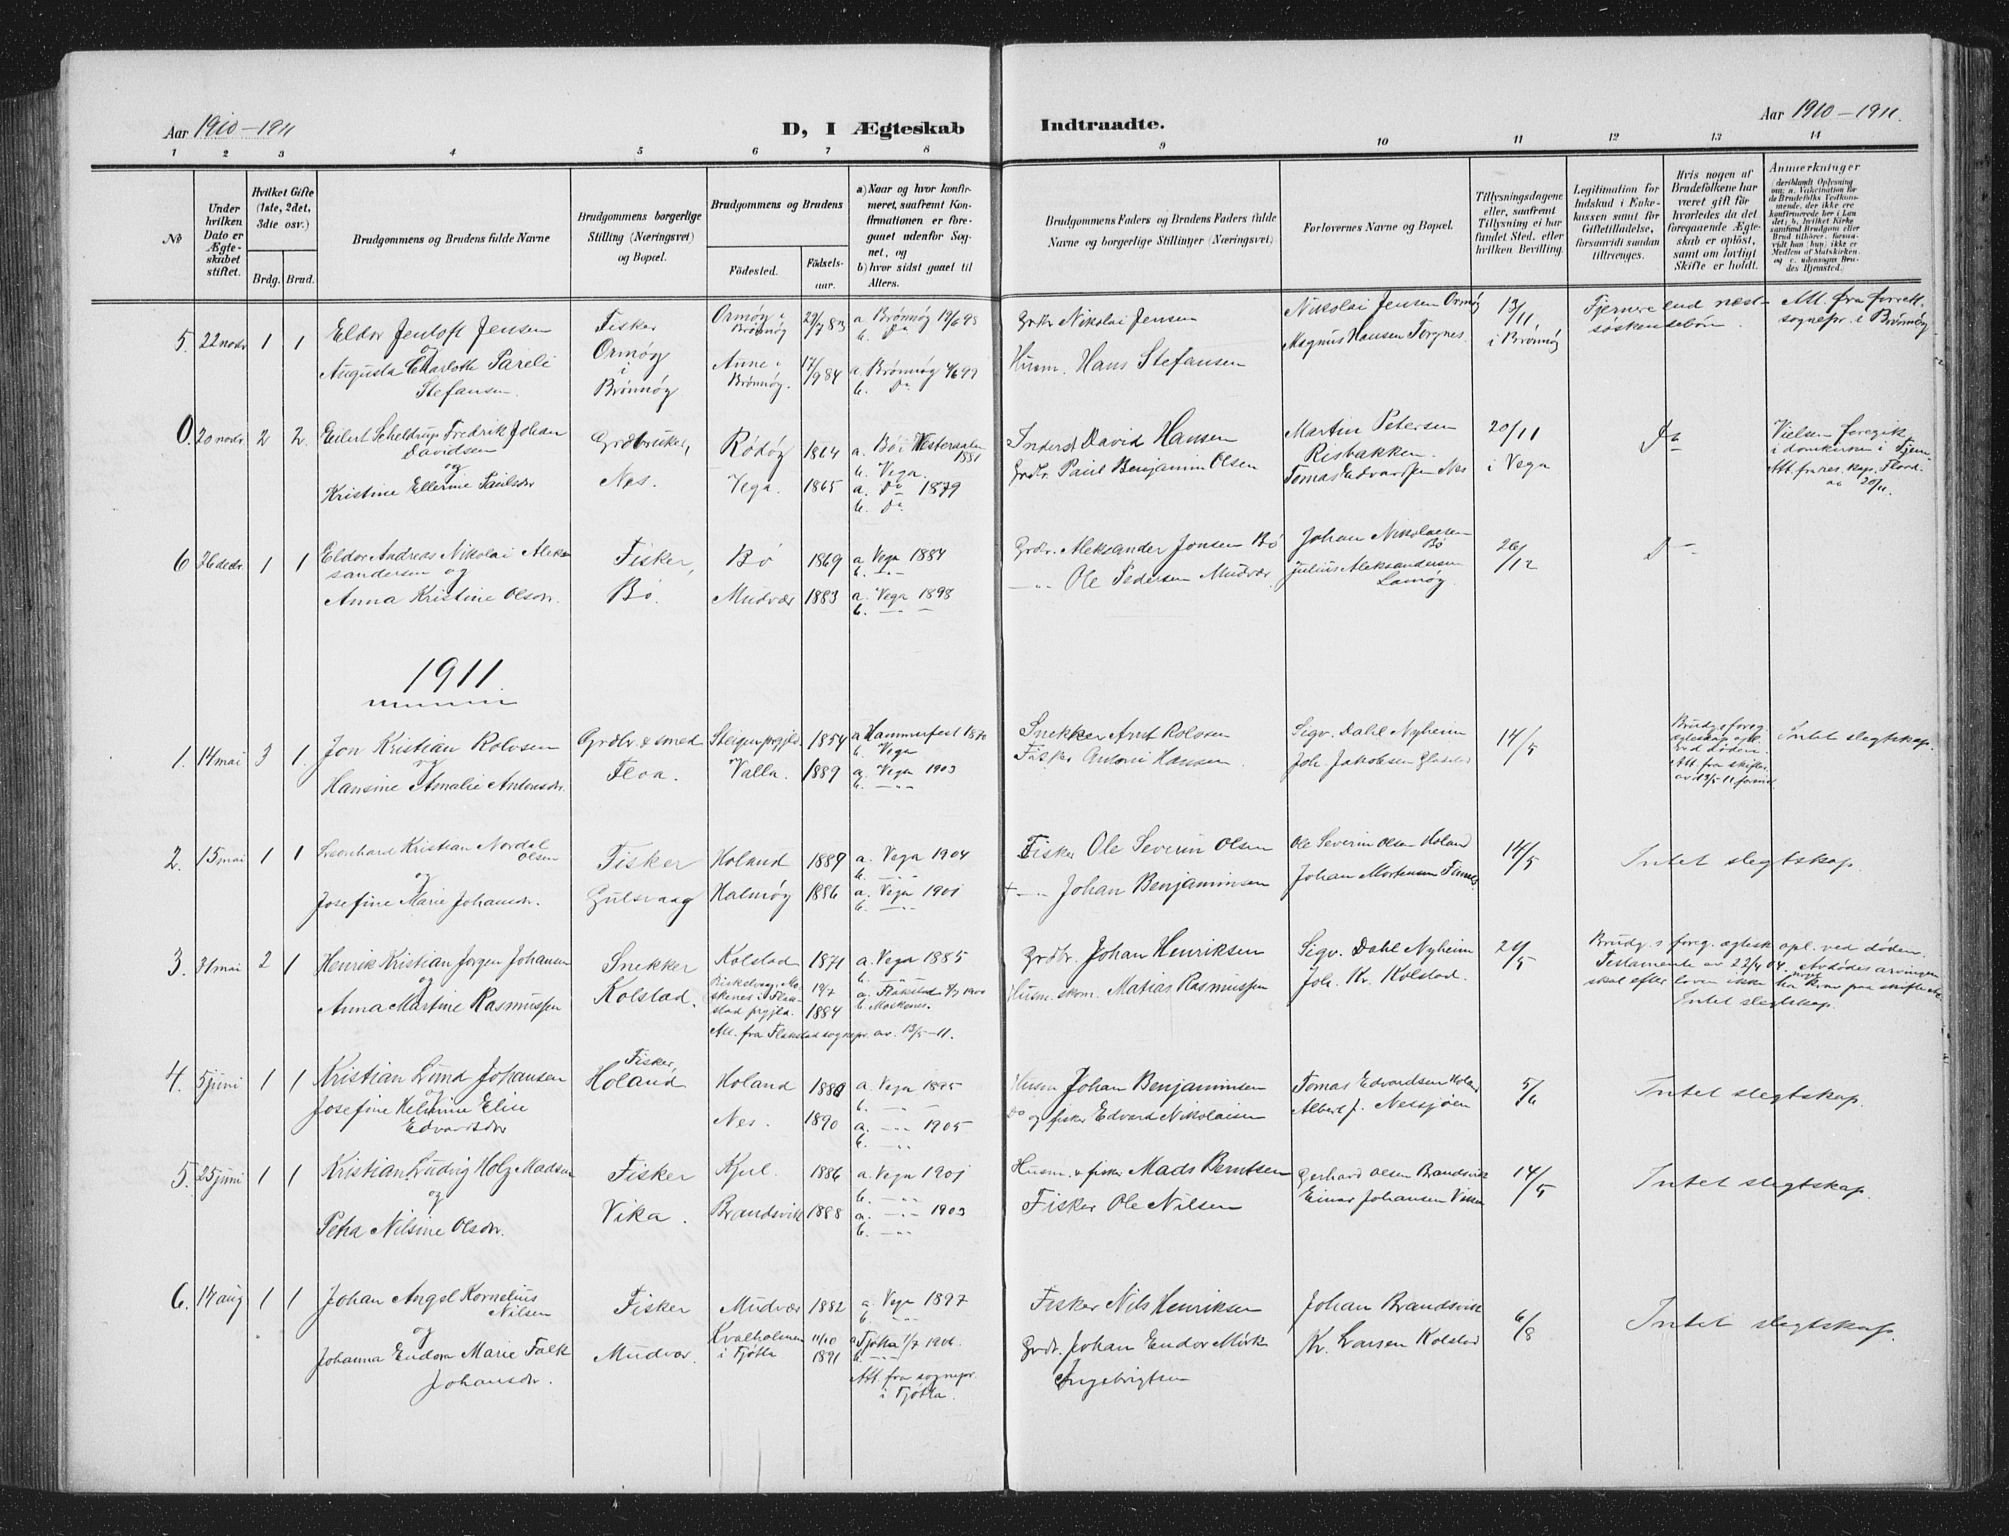 Aar 1910-1911
D, I Ægteskab
Indtraadte.
Aar 1910-1911.
1 2 3 4 5 6 7 8 9 10 11 12 13 14
No
Under hvilken Dato er Ægteskabet stiftet.
Hvilket Gifte (1ste, 2det, 3die osv.)
Brdg. Brud.
Brudgommens og Brudens fulde Navne
Brudgommens borgerlige Stilling (Næringsvei) og Bopæl.
Brudgommens og Brudens
Födested.
Födsels-aar.
a) Naar og hvor konfirmeret, saafremt Konfirmationen er foregaaet udenfor Sognet, og
b) hvor sidst gaaet til Alters.
Brudgommens Faders og Brudens Faders fulde Navne og borgerlige Stillinger (Næringsvei)
Forlovernes Navne og Bopæl.
Tillysningsdagene eller, saafremt Tillysning ei har fundet Sted, efter hvilken Bevilling.
Legitimation for Indskud i Enkekassen samt for Giftetilladelse, forsaavidt saadan tiltrænges.
Hvis nogen af Brudefolkene har været gift för hvorledes da det foregaaende Ægteskab er oplöst, samt om lovligt Skifte er holdt.
Anmerkninger
5. 22 novbr 1 1
Eldor Jentoft Jensen
og
Augusta Charlotte Pareli
Stefansen.
Fisker
Ormøy
i
Brønnøy
Ormøy i Brønnøy 29/7 83
a Brønnøy 19/6 98
b. Do
Anne i Brønnøy. 17/9 84
a. Brønnøy 4/6 99
b. Do
Grbr Nikolai Jensen
Husm. Hans Stefansen
Nikolai Jensen Ormøy
Magnus Hansen Torgnes.
13/11
i Brønnøy
Fjernere end næst-
søskendebørn.
Att. fra forrett.
sognepr. i Brønnøy
0. 20 novbr 2 2.
Eilert Scheldrup Fredrik Johan
Davidsen
og
Kristine Ellerine Paulsdr
Grdbruker,
Nes.
Rødøy 1864
Vega. 1865
a. Bø i Vesteraalen
1881
b. Vega
a. Do 1879
b. Do
Inderst David Hansen
Grdbr. Paul Benjamin Olsen
Martin Petersen
Risbakken.
Tomas Edvardsen Nes
20/11
i Vega
Do
Vielsen foregik
20/11.
6 26 decbr. 1 1
Eldor Andreas Nikolai Alek-
sandersen og
Anna Kristine Olsdr.
Fisker,
Bø.
Bø 1869
a Vega 1884
b. -"-
Mudvær 1883
a. Vega 1898
b. -"-
Grdbr. Aleksander Jonsen Bø
-"- Ole Pedersen Mudvær
Johan Nikolaisen
Bø
Julius Aleksandersen
26/12
D-
1911
1. 14 mai 3 1.
Jon Kristian Rolvsen
og
Hansine Amalie Antonsdr.
Grdbr & smed
Floa.
Steigen prgjld. 1854
a Hammerfest 1870
b. Vega
Valla. 1889
a. Vega 1903
b. -"-
Snekker Arnt Rolvsen
Fisker Antoni Hansen
Sigv. Dahl Nyheim
Joh. Jakobsen
14/5
Brudg. foreg.
ved døden.
Att. fra skifter.
Intet slegtskap.
2. 15 mai 1 1
Leonhard Kristian Nordal
Olsen
og
Josefine Marie Johansdr.
Fisker
Gulsvaag
Holand 1889
a. Vega 1904
b. -"-
Halmøy 1886
a. Vega 1901
b. -"-
Fisker Ole Severin Olsen
+ -"- Johan Benjaminsen
Ole Severin Olsen Holand
Johan Mortensen
14/5
Intet slegtskap.
3. 31 mai 2 1
Henrik Kristian Jørgen Johansen
og
Anna Martine Rasmussen
Snekker
Kolstad.
Kolstad 1871
a. Vega 1885
b. -"-
19/7
1884
a. Flakstad 8/7 1900
b. Moskenes.
Att. fra Flakstad sognepr. av. 13/5-11.
Grdbr. Johan Henriksen
Husm. skom. Matias Rasmussen
Sigv. Dahl Nyheim
Joh. Kr. Kolstad.
21/5
Brudg.s foreg. egtesk. opl. ved døden.
Testamente av 22/4 04. Avdødes arvinger
Intet slegtskap.
4. 5 juni 1 1
Kristian Lund Johansen
og
Josefine Helmine Elise
Edvardsdr
Fisker,
Holand
Holand 1880
a. Vega 1895
b. -"-
Nes. 1890
a. -"- 1905
b. -"-
Husm Johan Benjaminsen
Do og fisker Edvard Nikolaisen
Tomas Edvardsen Holand
Albert J. Nessjøen
5/6
Intet slegtskap.
5. 25 juni 1 1
Kristian Ludvig Holg. Madsen
og
Petra Nilsine Olsdr.
Fisker
Vika.
Kjul. 1886
a. Vega 1901
b. -"-
Brandsvik 1888
a. -"- 1903
b. -"-
Husm. & fisker Mads Berntsen
Fisker Ole Nilsen
Gerhard Olsen Brandsvik
Einar Johansen
14/5
Intet slegtskap.
6. 14 aug 1 1
Johan Angel Kornelius
Nilsen
og
Johanna Endora Marie Falk
Johansdr.
Fisker
Mudvær.
Mudvær 1882
a. Vega 1897
b. -"-
Kvalholmen
i Tjøtta
11/10
1891
a Tjøtta 1/7 1906.
b. -"-
Att. fra sognepr.
i Tjøtta.
Fisker Nils Henriksen
Grdbr. Johan Endor Mørk
Ingebrigtsen
Johan Brandsvik
Kr. Larsen Kolstad
6/8
Intet slegtskap.